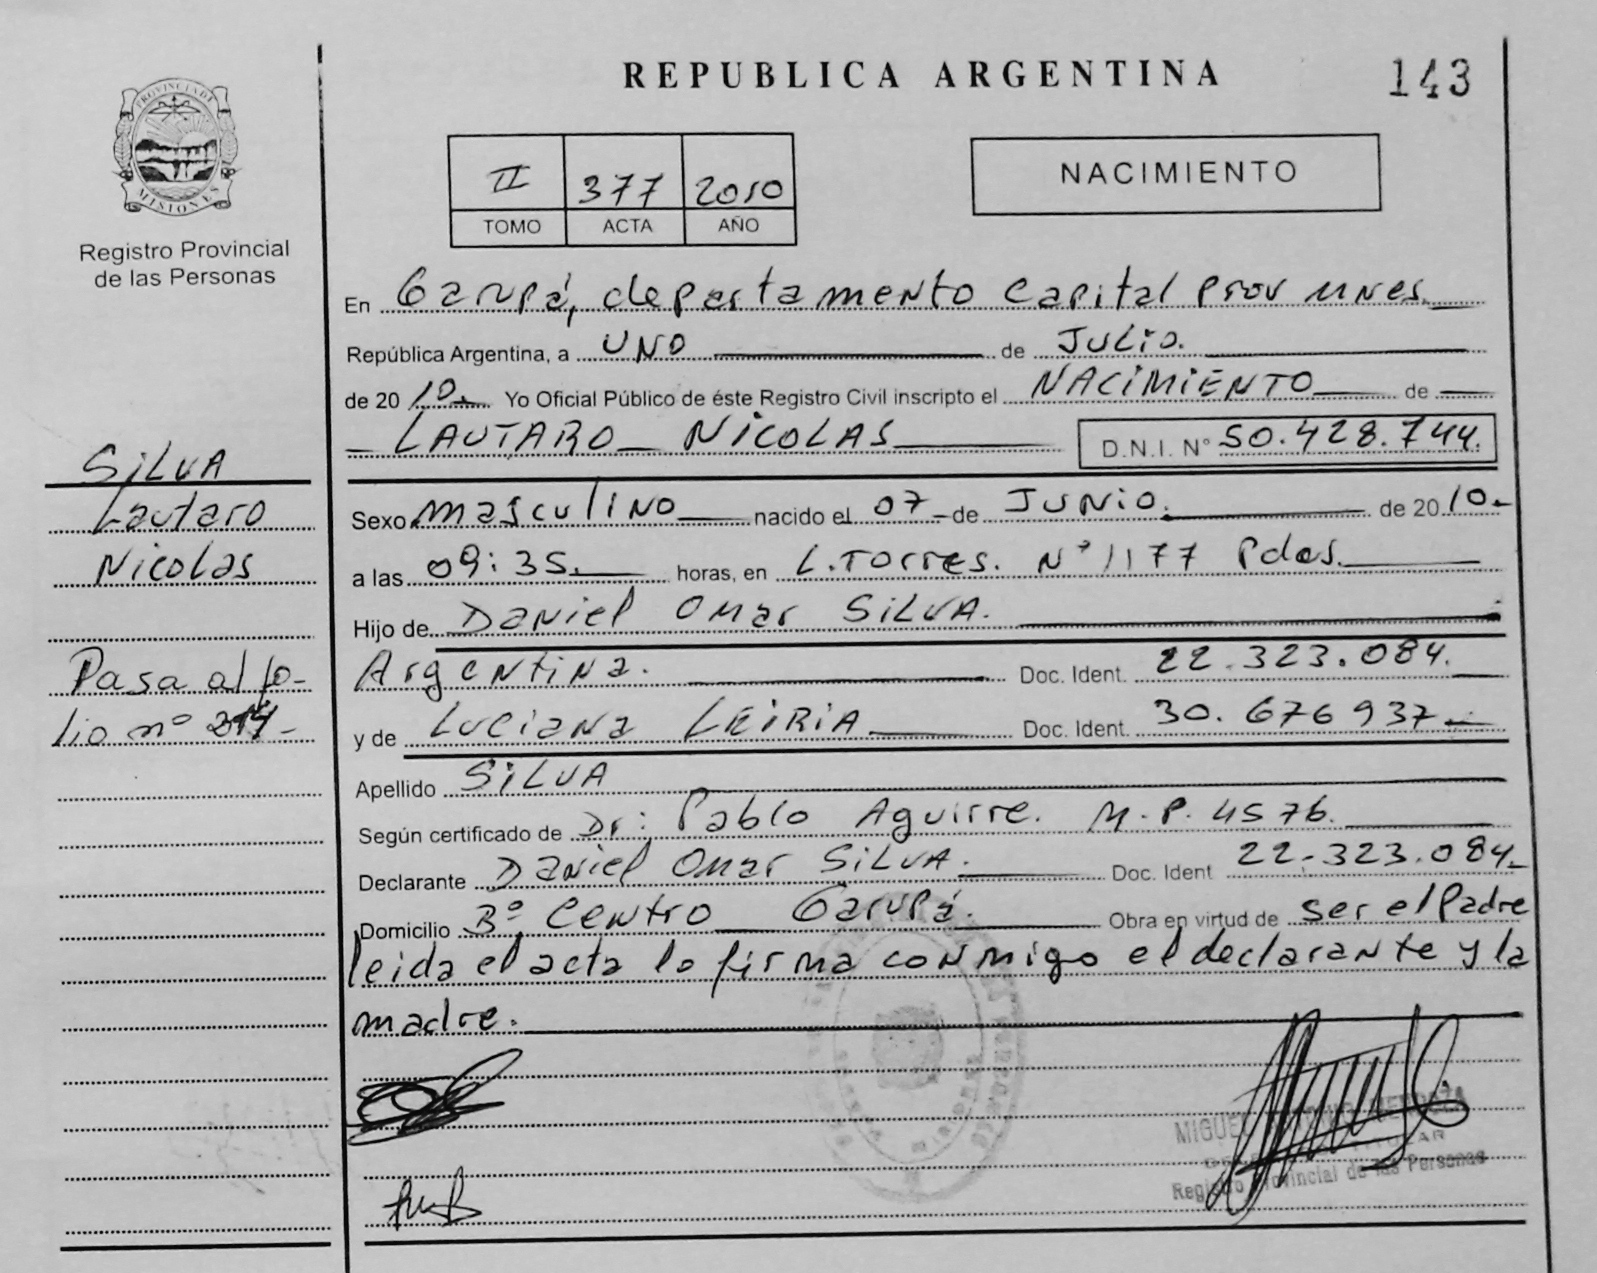 REPUBLICA ARGENTINA
143
PROVINCIA DE
MISIONES
Registro Provincial
de las Personas
II 377 2010
TOMO ACTA AÑO
NACIMIENTO
En Garupá, departamento Capital Prov Mnes.
República Argentina, a UNO de JULIO.
de 2010. Yo Oficial Público de éste Registro Civil inscripto el NACIMIENTO de
LAUTARO NICOLAS D.N.I. N° 50.428.744.
SILVA
Lautaro
Nicolas
Sexo masculino nacido el 07 de JUNIO. de 2010.-
a las 09:35. horas, en L. Torres. N° 1177 Pdas.
Hijo de Daniel Omar SILVA.
Argentina. Doc. Ident. 22.323.084.
y de Luciana LEIRIA Doc. Ident. 30.676937.-
Pasa al fo-
lio nº
Apellido SILVA
Según certificado de Dr: Pablo Aguirre. M.P. 4576.
Declarante Daniel Omar SILVA. Doc. Ident 22.323.084-
Domicilio Bº Centro Garupá. Obra en virtud de ser el Padre
leida el acta lo firma conmigo el declarante y la
madre.
MIGUEL MENDOZA
Registro Provincial de las Personas